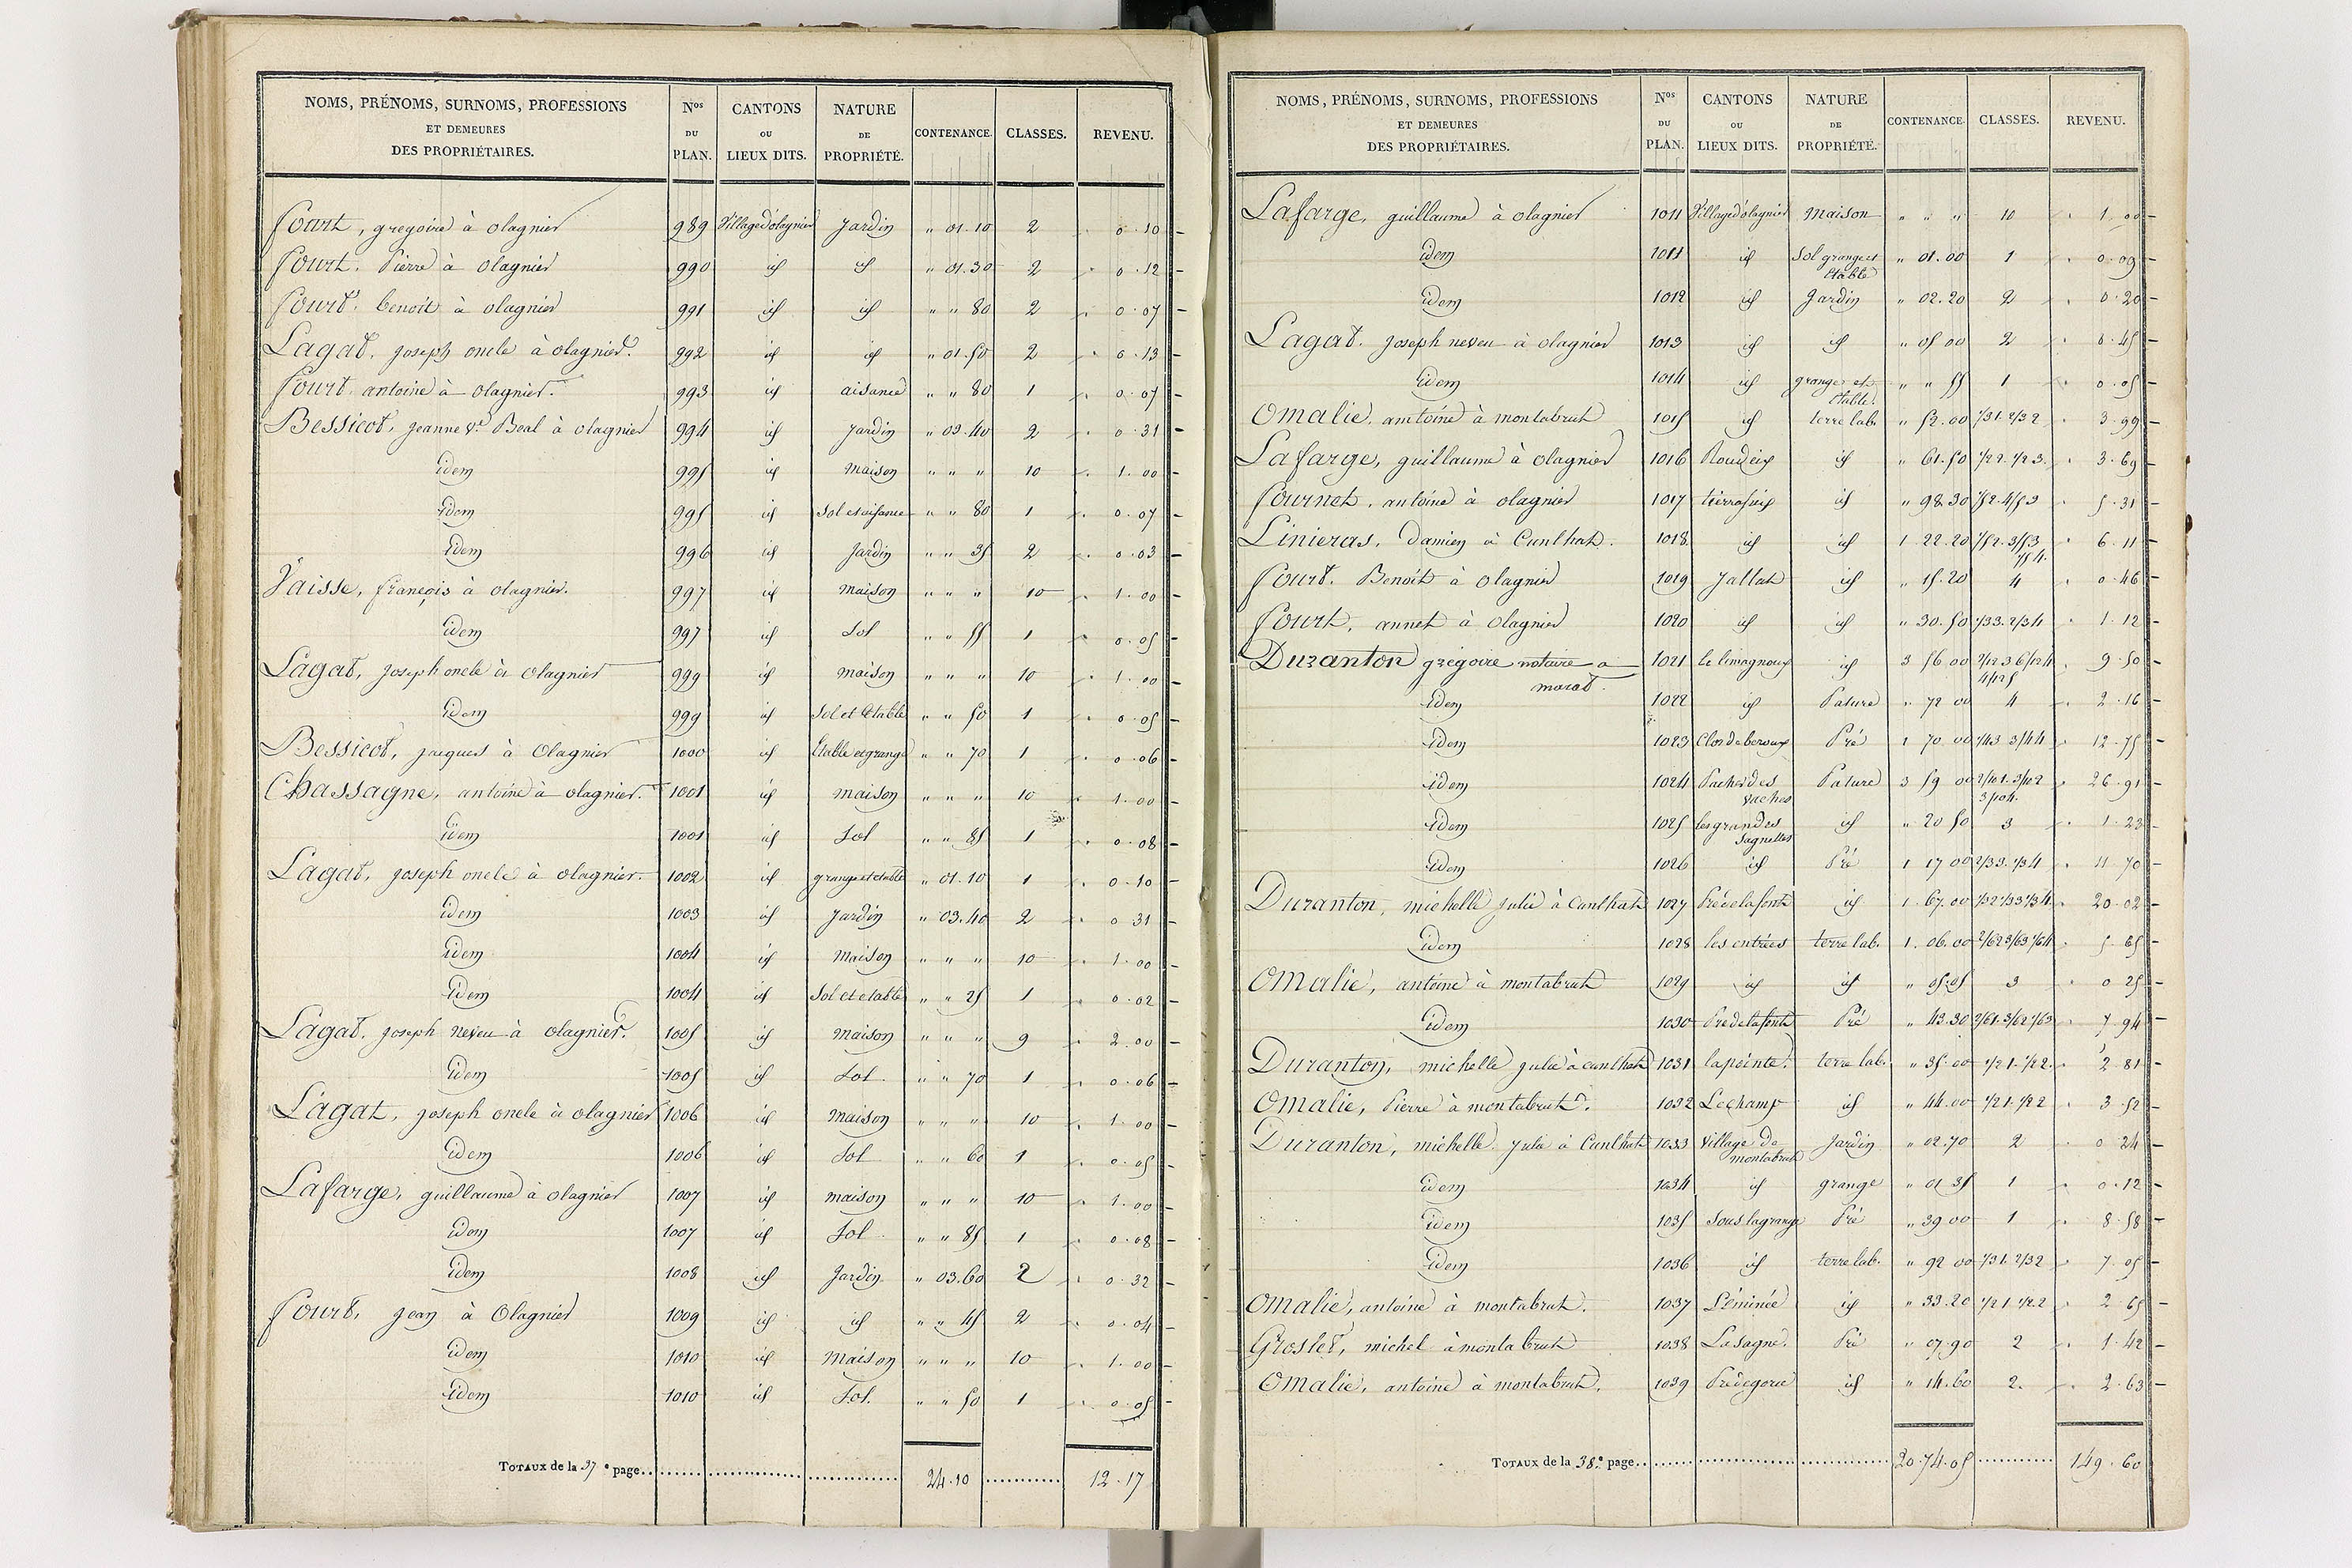 NOMS, PRÉNOMS, SURNOMS, PROFESSIONS ET DEMEURES DES PROPRIÉTAIRES. Nos DU PLAN. CANTONS OU LIEUX DITS. NATURE DE PROPRIÉTÉ. CONTENANCE. CLASSES. REVENU.
Court, gregoire à olagnier 989 Village d'olagnier Jardin " 01.10 2 0.10
Court. Pierre à olagnier 990 id id " 01.30 2 0.12
Court. benoit à olagnier 991 id id " " 80 2 0.07
Lagat. joseph oncle à olagnier. 992 id id " 01.50 2 0.13
Court. antoine à olagnier. 993 id aisance " " 80 1 0.07
Bessicot, jeanne ve. Beal à olagnier 994 id Jardin " 03.40 2 0.31
idem 995 id maison " " " 10 1.00
idem 995 id Sol et aisance " " 80 1 0.07
idem 996 id Jardin " " 35 2 0.03
Vaisse, françois à olagnier. 997 id maison " " " 10 1.00
idem 997 id Sol " " 55 1 0.05
Lagat, joseph oncle à olagnier 999 id maison " " " 10 1.00
idem 999 id Sol et Etable " " 50 1 0.05
Bessicot, jacques à olagnier 1000 id Etable et grange " " 70 1 0.06
Chassagne, antoine à olagnier. 1001 id maison " " " 10 1.00
idem 1001 id Sol " " 85 1 0.08
Lagat, joseph oncle à olagnier. 1002 id grange et etable " 01.10 1 0.10
idem 1003 id Jardin " 03.40 2 0.31
idem 1004 id maison " " " 10 1.00
idem 1004 id Sol et etable " " 25 1 0.02
Lagat, joseph neveu à olagnier. 1005 id maison " " " 9 2.00
idem 1005 id Sol. " " 70 1 0.06
Lagat, joseph oncle à olagnier 1006 id maison " " " 10 1.00
idem 1006 id Sol " " 60 1 0.05
Lafarge, guillaume à olagnier 1007 id maison " " " 10 1.00
idem 1007 id Sol " " 85 1 0.08
idem 1008 id Jardin " 03.60 2 0.32
Court, jean à Olagnier 1009 id id " " 45 2 0.04
idem 1010 id Maison " " " 10 1.00
idem 1010 id Sol. " " 50 1 0.05
TOTAUX de la 37e page 24.10 12.17
NOMS, PRÉNOMS, SURNOMS, PROFESSIONS ET DEMEURES DES PROPRIÉTAIRES. Nos DU PLAN. CANTONS OU LIEUX DITS. NATURE DE PROPRIÉTÉ. CONTENANCE. CLASSES. REVENU.
Lafarge, guillaume à olagnier 1011 Village d'olagnier Maison " " " 10 1.00
idem 1011 id Sol grange et Etable " 01.00 1 0.09
idem 1012 id Jardin " 02.20 2 0.20
Lagat. joseph neveu à olagnier 1013 id id " 05 00 2 0.45
idem 1014 id grange et Etable. " " 55 1 0.05
Omalie, antoine à montabrut 1015 id terre lab. " 52.00 1/31. 2/32 3.99
Lafarge, guillaume à olagnier 1016 Roudeix id " 61.50 1/22. 1/23. 3.69
Fournet, antoine à olagnier 1017 id " 98.30 1/52. 4/53 5.31
Linieras, Damien à Cunlhat. 1018 id id 1 22.20 1/52. 3/53 1/54. 6.11
Court. Benoit à olagnier 1019 Jallat id " 15.20 4 0.46
Court, annet à olagnier 1020 id id " 30.50 1/33. 2/34 1.12
Duranton grégoire notaire a marat. 1021 le limagnoux id 3 56.00 2/123 6/124 4/125 9.50
idem 1022 id Pature " 72 00 4 2.16
idem 1023 Pré 1 70 00 1/43 3/44 12.75
idem 1024 vaches Pature 3 59 00 2/101. 3/102 3/104. 26.91
idem 1025 les grandes Sagnettes id " 20 50 3 1.23
idem 1026 id Pré 1 17 00 2/33. 1/34 11.70
Duranton, michelle julie à Cunlhat 1027 Pré de la font id 1.67.00 1/32 1/33 1/34 20.02
idem 1028 les entrées terre lab. 1.06.00 2/62 3/63 1/64 5.65
Omalie, antoine à montabrut 1029 id id " 05.05 3 0 25
idem 1030 Pré de la font Pré " 43.30 2/61. 3/62 1/63 7.94
Duranton, michelle julie à cunlhat 1031 la pointe. terre lab. " 35.00 1/21. 1/22. 2 81
Omalie, Pierre à montabrut. 1032 Le champ id " 44.00 1/21. 1/22 3.52
Duranton, michelle julie à Cunlhat 1033 Village de montabrut Jardin " 02.70 2 0.24
idem 1034 id grange " 01 35 1 0.12
idem 1035 Sous la grange Pré " 39 00 1 8.58
idem 1036 id terre lab. " 92 00 1/31. 2/32 7.05
Omalie, antoine à montabrut. 1037 L'éminée id " 33.20 1/21 1/22 2 65
Groslet, michel à montabrut 1038 La Sagne. Pré " 07.90 2 1.42
Omalie, antoine à montabrut. 1039 id " 14.60 2. 2.63
TOTAUX de la 38e page 20.74.05 149.60